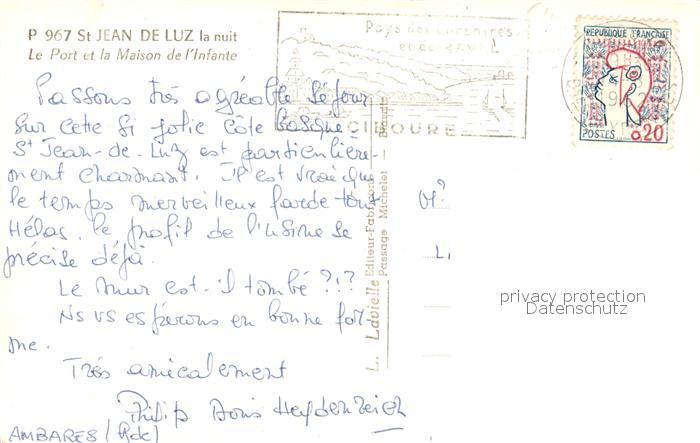 P 967 St JEAN DE LUZ la nuit
Le Port et la Maison de l'Infante
Passons très agréable séjour
sur cette si jolie côte basque
St Jean-de-Luz est particulière-
ment charmant. Il est vrai que
le temps merveilleux farde tout
Hélas, le profil de l'usine se
précise déjà.
Le mur est-il tombé ?!?
Ns vs espérons en bonne for-
me.
Très amicalement
Philip Doris Heydenreich
AMBARES/(Rdc)
Pays des Corsaires
et de RAVEL
CIBOURE
REPUBLIQUE FRANÇAISE
POSTES 0,20
L. Lavielle Editeur-Fabricant
Passage Michelet - Biarritz
Mr
L.
privacy protection
Datenschutz